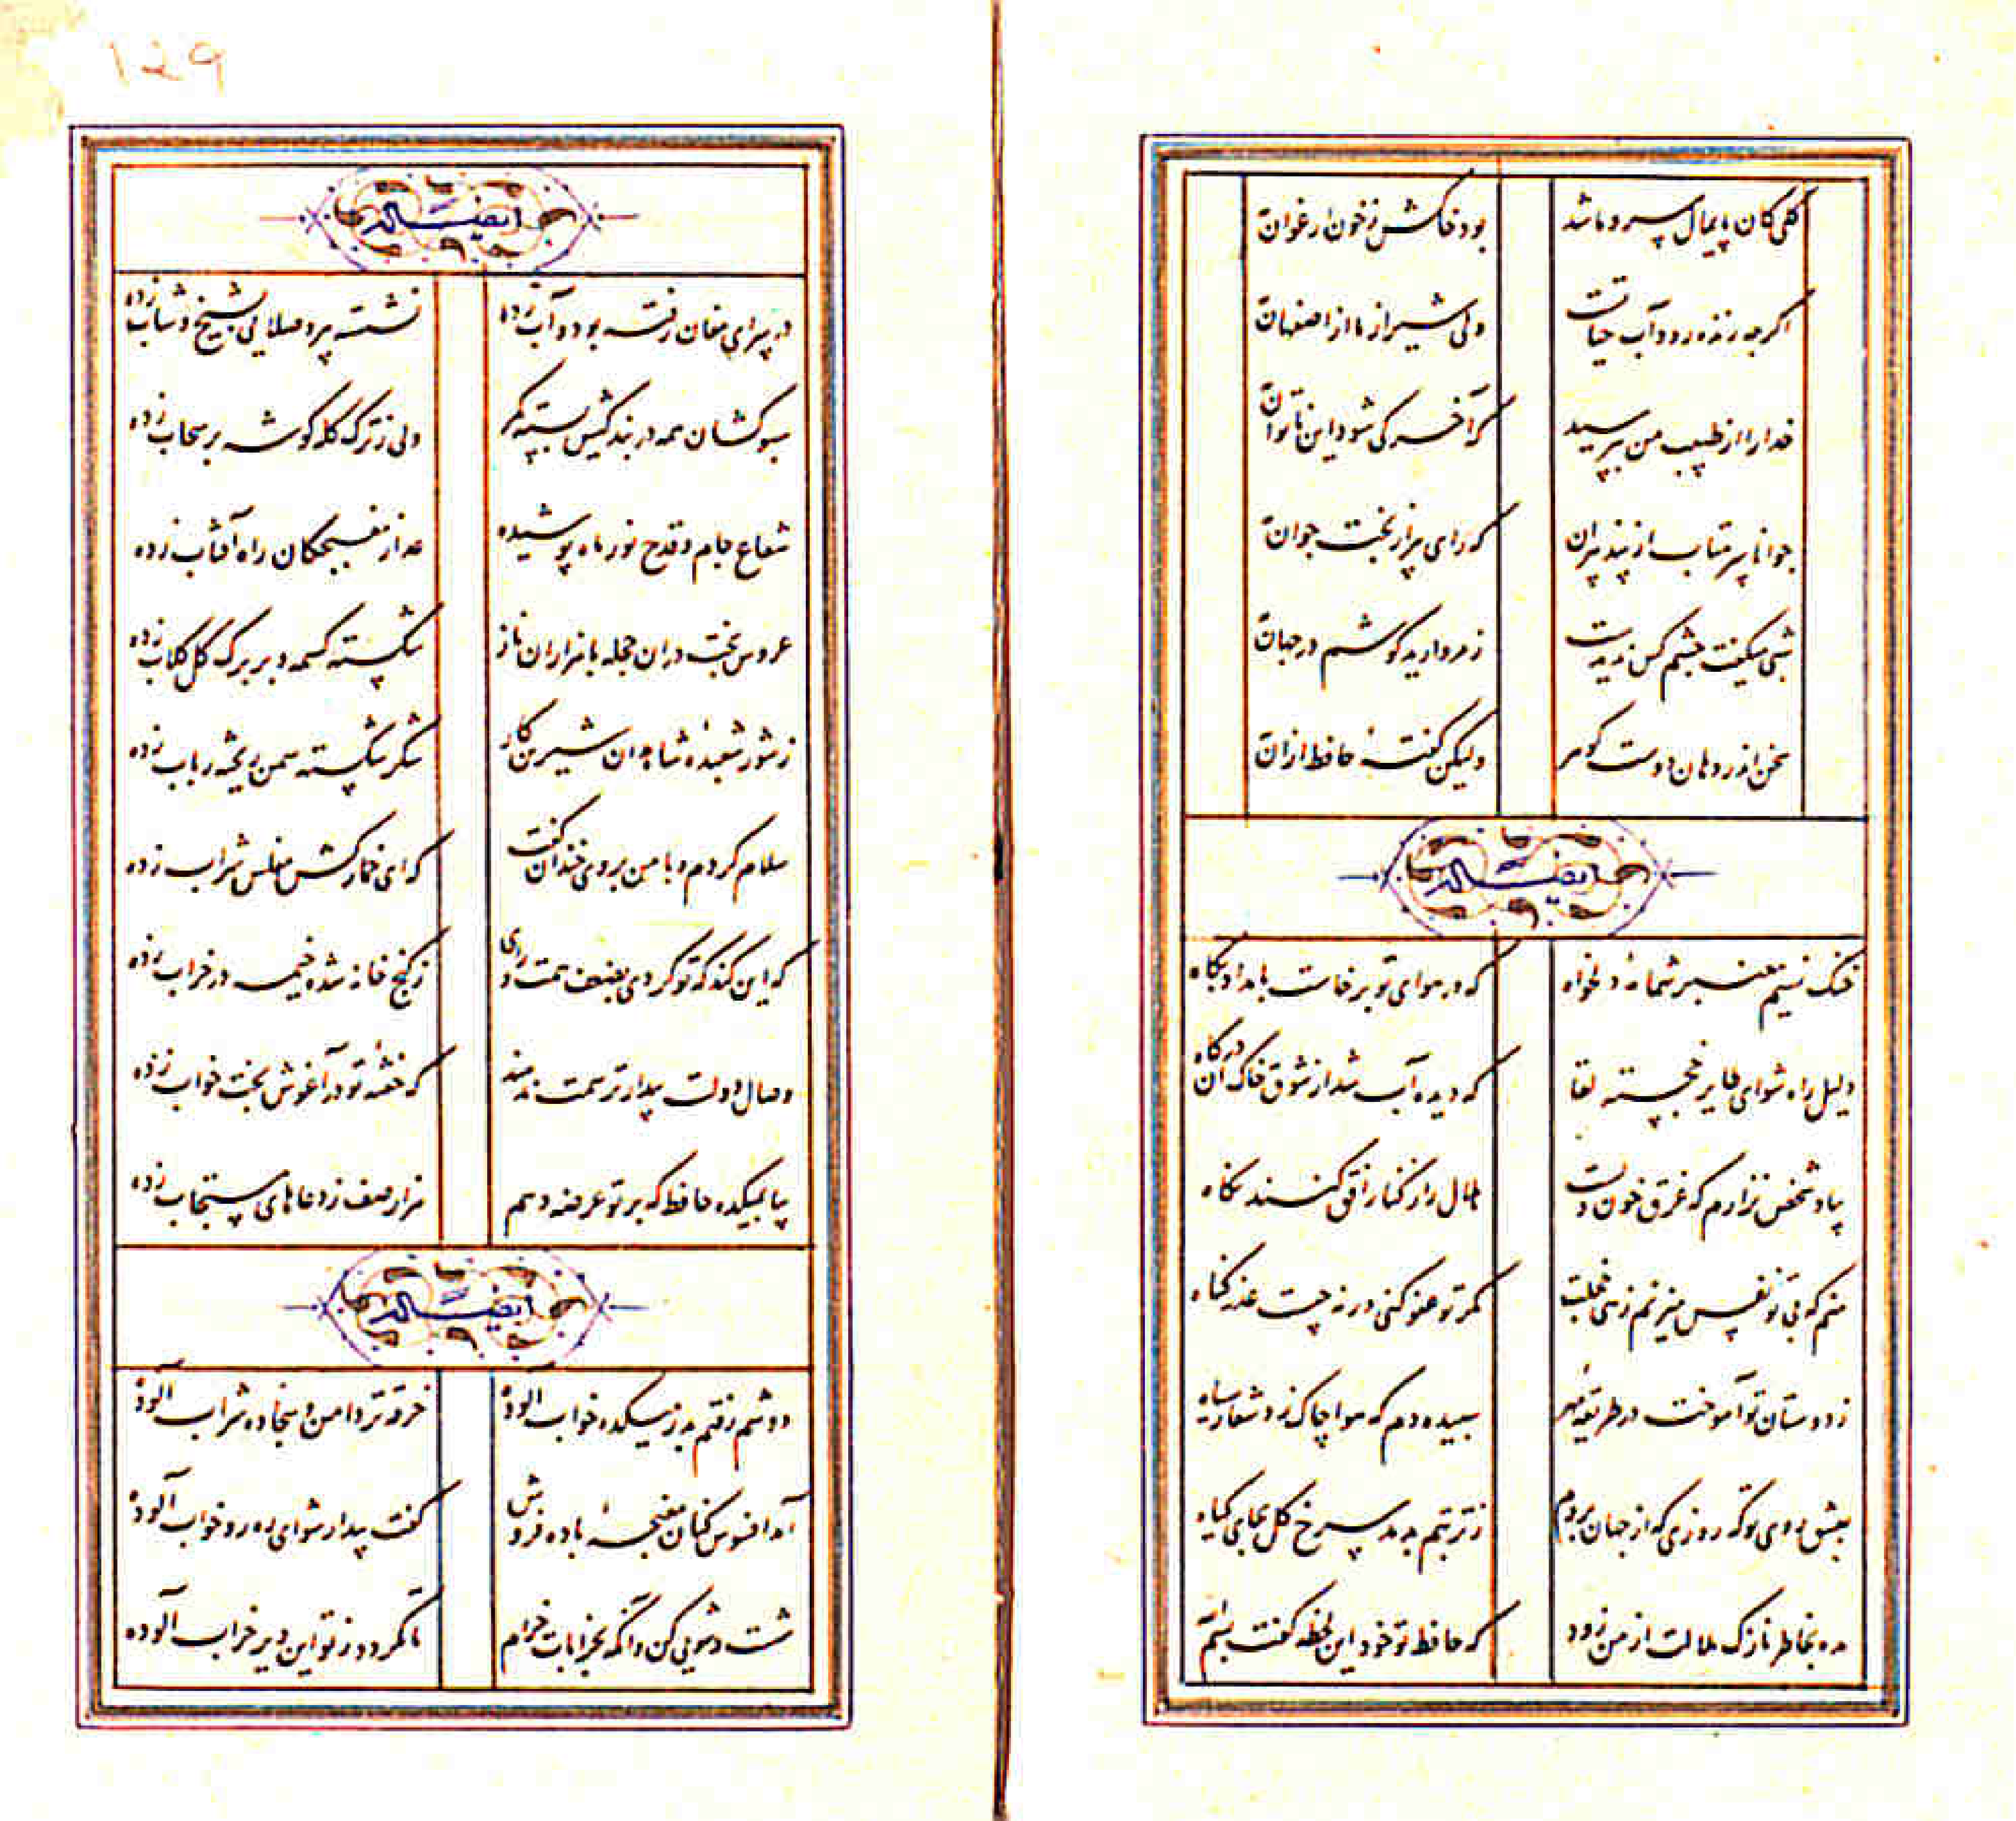 گلی کان پایمال سرو ما شد بود خاکش ز خون ارغوان
اگرچه زنده رود آب حیاتست ولی شیراز ما از اصفهان
خدا را از طبیب من بپرسید که آخر کی شود این ناتوان
جوانا سر متاب از پند پیران که رای پیر از بخت جوان
شبی میگفت چشم کس ندیدست ز مروارید گوشم در جهان
سخن اندر دهان دوست گوهر ولیکن گفتهٔ حافظ از آن
ایضاً له
خنک نسیم معنبر شمامهٔ دلخواه که در هوای تو برخاست بامداد پگاه
دلیل راه شو ای طایر خجسته لقا که دیده آب شد از شوق خاک آن درگاه
بیاد شخص نزارم که غرق خون دلست هلال را ز کنار افق کنند نگاه
منم که بی تو نفس میزنم زهی خجلت مگر تو عفو کنی ورنه چیست عذر گناه
ز دوستان تو آموخت در طریقهٔ مهر سپیده دم که هوا چاک زد شعار سیاه
بعشق روی تو که روزی که از جهان بروم ز تربتم بدمد سرخ گل بجای گیاه
مده بخاطر نازک ملالت از من زود که حافظ تو خود این لحظه گفت بسم الله
۱۴۹
ایضاً له
در سرای مغان رفته بود و آب زده نشسته پیر و صلایی بشیخ و شاب زده
سبوکشان همه در بندگیش بسته کمر ولی ز ترک کله گوشه بر سحاب زده
شعاع جام و قدح نور ماه پوشیده عذار مغبچگان راه آفتاب زده
عروس بخت در آن حجله با هزاران ناز شکسته کسمه و بر برگ گل گلاب زده
ز شور شعبدهٔ شاهدان شیرین کار شکر شکسته سمن ریخته رباب زده
سلام کردم و با من بروی خندان گفت که ای خمارکش مفلس شراب زده
که این کند که تو کردی بضعف همت و رای ز کنج خانه شده خیمه در خراب زده
وصال دولت بیدار ترسمت ندهند که خفتهٔ تو در آغوش بخت خواب زده
بیا بمیکده حافظ که بر تو عرضه دهم هزار صف ز دعاهای مستجاب زده
ایضاً له
دوشم رفتم بدر میکده خواب آلوده خرقه تر دامن و سجاده شراب آلوده
آمد افسوس کنان مغبچهٔ باده فروش گفت بیدار شو ای رهرو خواب آلوده
شست و شویی کن و آنگه بخرابات خرام تا نگردد ز تو این دیر خراب آلوده